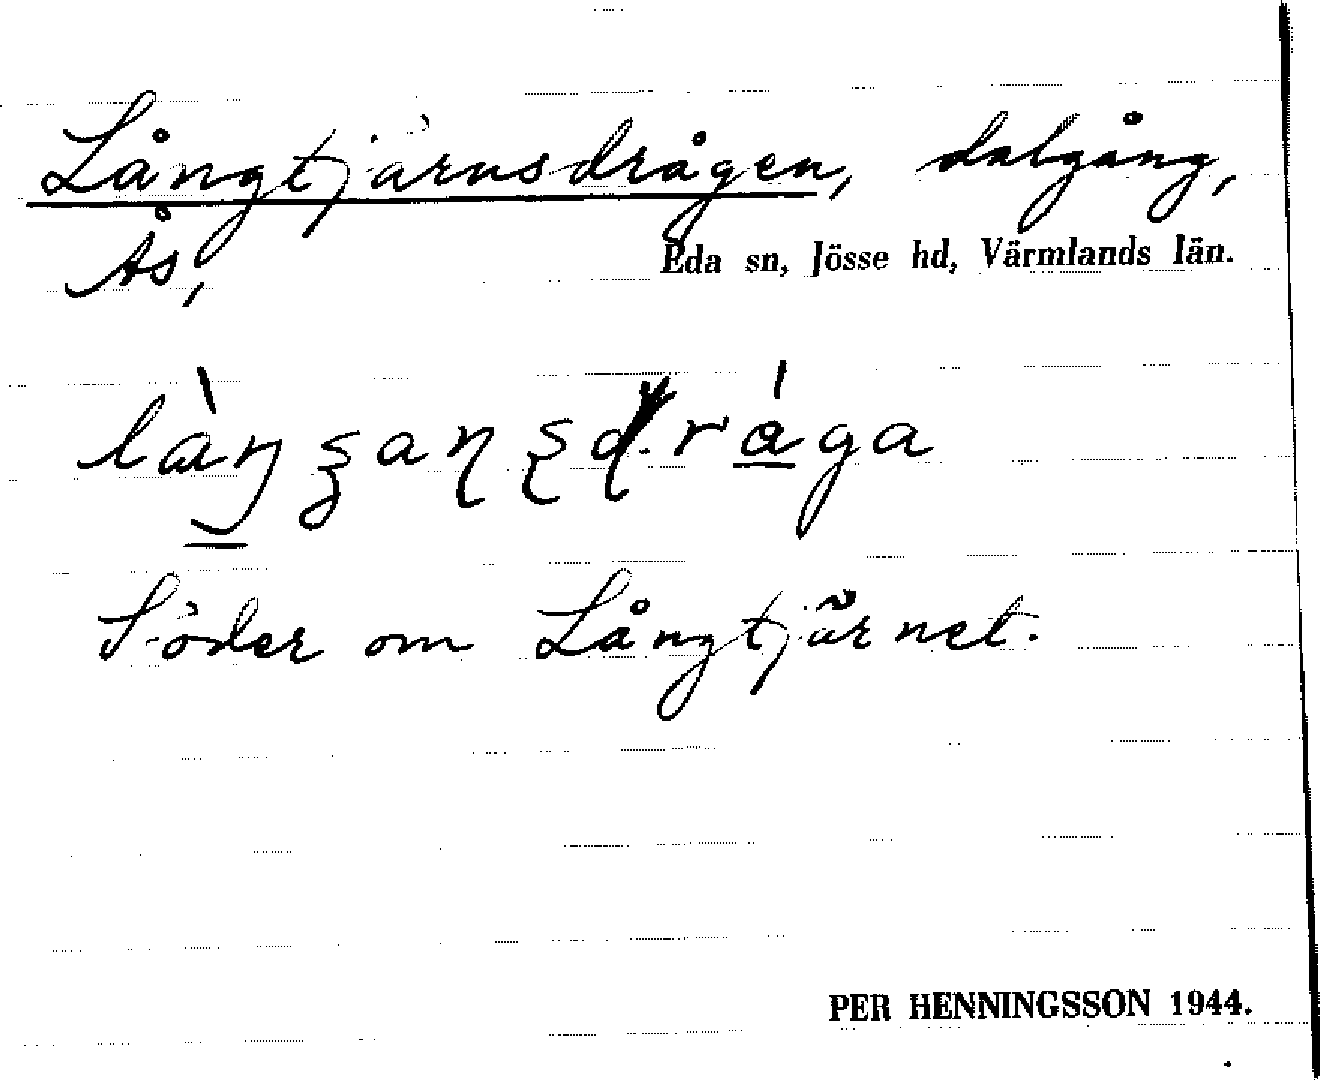 Långtjärnsdrågen, dalgång,
Ås,
Eda sn, Jösse hd, Värmlands län.
Söder om Långtjärnet.
PER HENNINGSSON 1944.